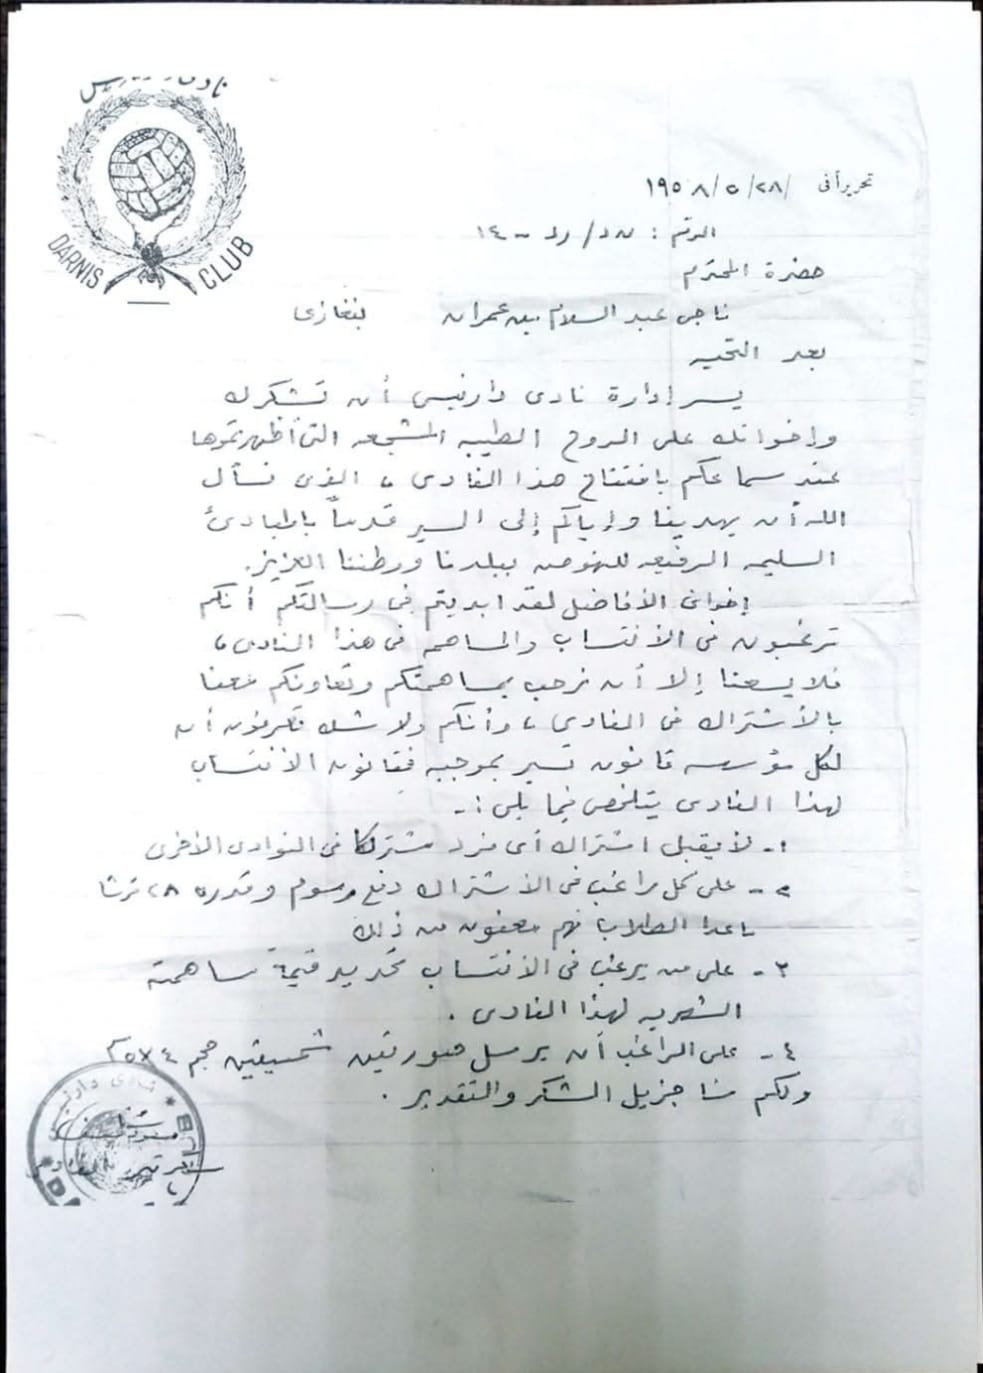 نادى
DARNIS CLUB
تحريرا فى ٢٨/٥/١٩٥٨
الرقم : ن د / ر د - ١٤
حضرة المحترم
ناجى عبد السلام بن عمران بنغازى
بعد التحيه
يسر إدارة نادى دارنيس أن تشكرك
وإخوانك على الروح الطيبه المشجعه التى أظهرتموها
عند سماعكم بافتتاح هذا النادى ، الذى نسأل
الله أن يهدينا وإياكم إلى السير قدماً بالمبادئ
السليمه الرفيعه للنهوض ببلدنا ووطننا العزيز.
إخوانى الأفاضل لقد ابديتم فى رسالتكم أنكم
ترغبون فى الأنتساب والمساهمه فى هذا النادى ،
فلا يسعنا إلا أن نرحب بمساهمتكم وتعاونكم معنا
بالأشتراك فى النادى ، وأنكم ولا شك تعرفون أن
لكل مؤسسه قانون تسير بموجبه فقانون الأنتساب
لهذا النادى يتلخص فيما يلى :-
١- لا يقبل اشتراك أى فرد مشتركا فى النوادى الأخرى
٢- على كل راغب فى الأشتراك دفع رسوم وقدره ٢٨ قرشا
ماعدا الطلاب فهم معفون من ذلك
٣- على من يرغب فى الأنتساب تحديد قيمة مساهمته
الشهريه لهذا النادى .
٤- على الراغب أن يرسل صورتين شمسيتين حجم ٤×٣٥
ولكم منا جزيل الشكر والتقدير .
نادى دارنيس